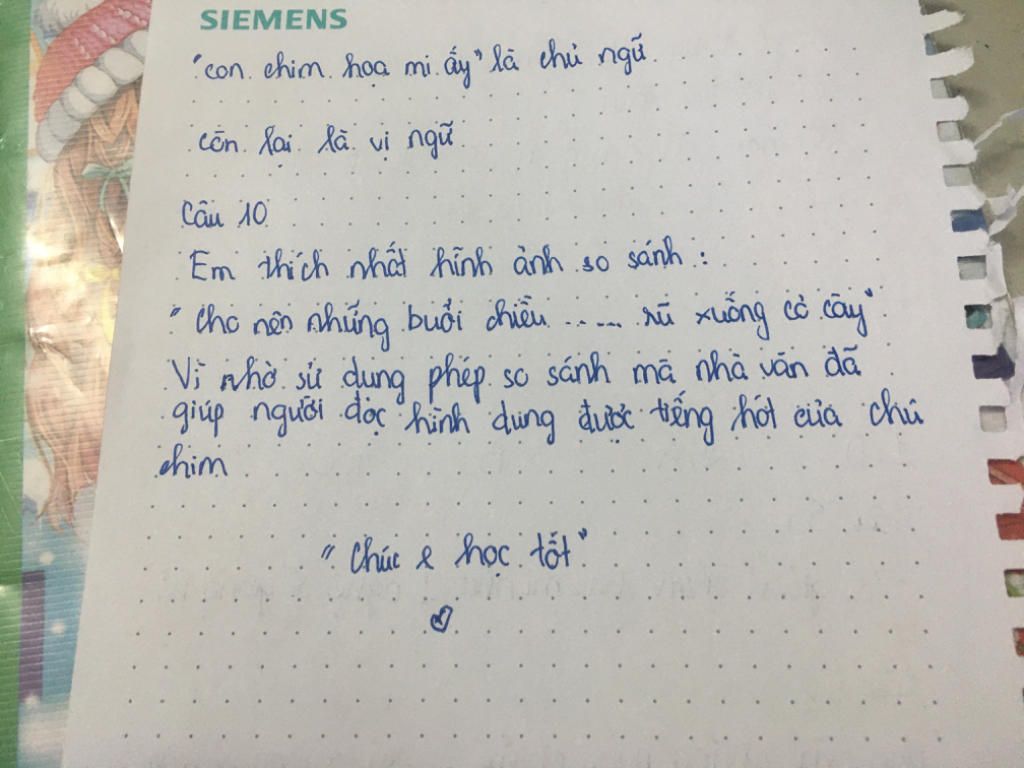 SIEMENS
"con chim hoạ mi ấy" là chủ ngữ
còn lại là vị ngữ
Câu 10
Em thích nhất hình ảnh so sánh :
"Cho nên những buổi chiều ..... rũ xuống cỏ cây"
Vì nhờ sử dụng phép so sánh mà nhà văn đã
giúp người đọc hình dung được tiếng hót của chú
chim
"Chúc e học tốt"